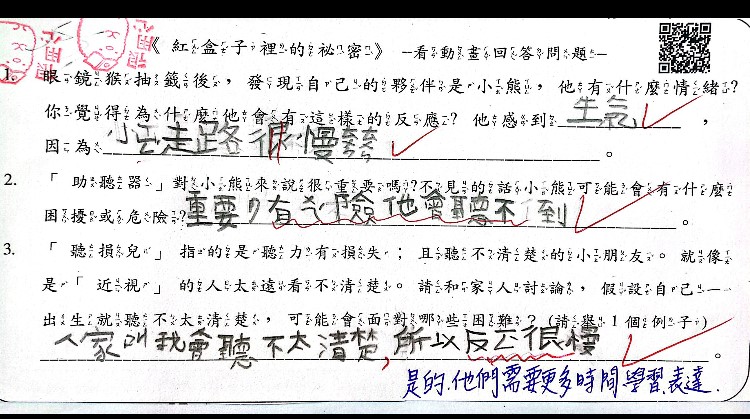 《紅盒子裡的祕密》 —看動畫回答問題—
1. 眼鏡猴抽籤後，發現自己的夥伴是小熊，他有什麼情緒？
你覺得為什麼他會有這樣的反應？他感到生氣，
因為走路很慢。
2. 「助聽器」對小熊來說很重要嗎？不見的話小熊可能會有什麼
困擾或危險？重要，有危險他會聽不到。
3. 「聽損兒」指的是聽力有損失；且聽不清楚的小朋友。就像
是「近視」的人太遠看不清楚。請和家人討論，假設自己一
出生就聽不太清楚，可能會面對哪些困難？(請舉1個例子)
人家叫我會聽不太清楚，所以反云很慢。
是的，他們需要更多時間學習、表達.